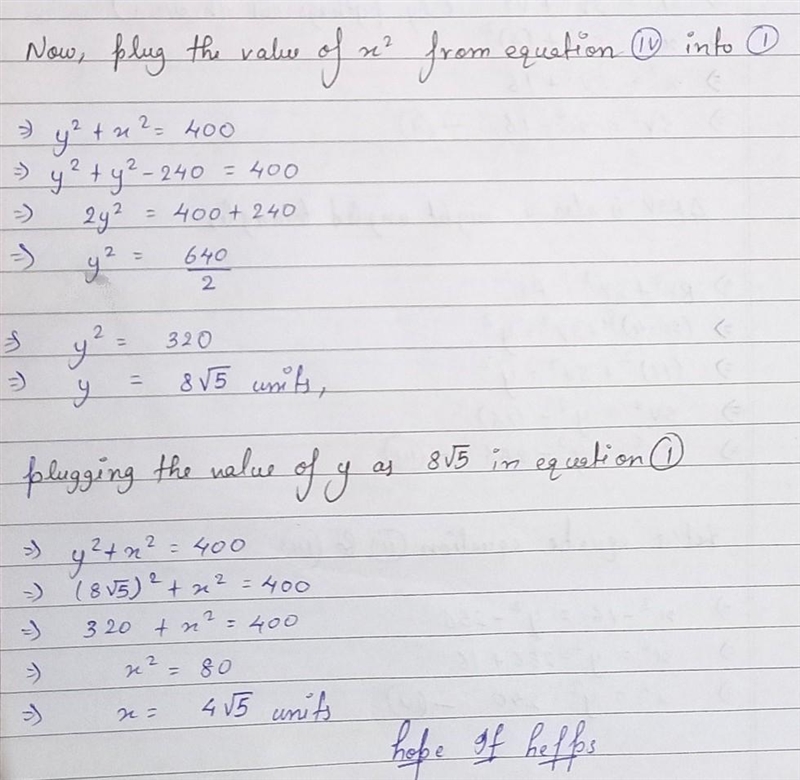 Now, plug the value of x² from equation (IV) into (I)
⇒ y² + x² = 400
⇒ y² + y² - 240 = 400
⇒ 2y² = 400 + 240
⇒ y² = 640/2
⇒ y² = 320
⇒ y = 8√5 units,
plugging the value of y as 8√5 in equation (I)
⇒ y² + x² = 400
⇒ (8√5)² + x² = 400
⇒ 320 + x² = 400
⇒ x² = 80
⇒ x = 4√5 units
hope If helps